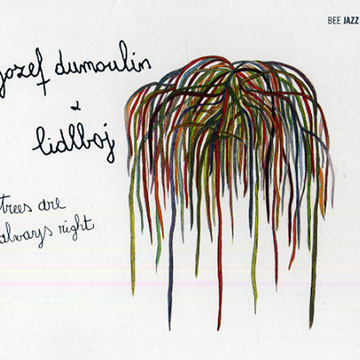 BEE JAZZ
jozef dumoulin
&
lidlboj
trees are
always right